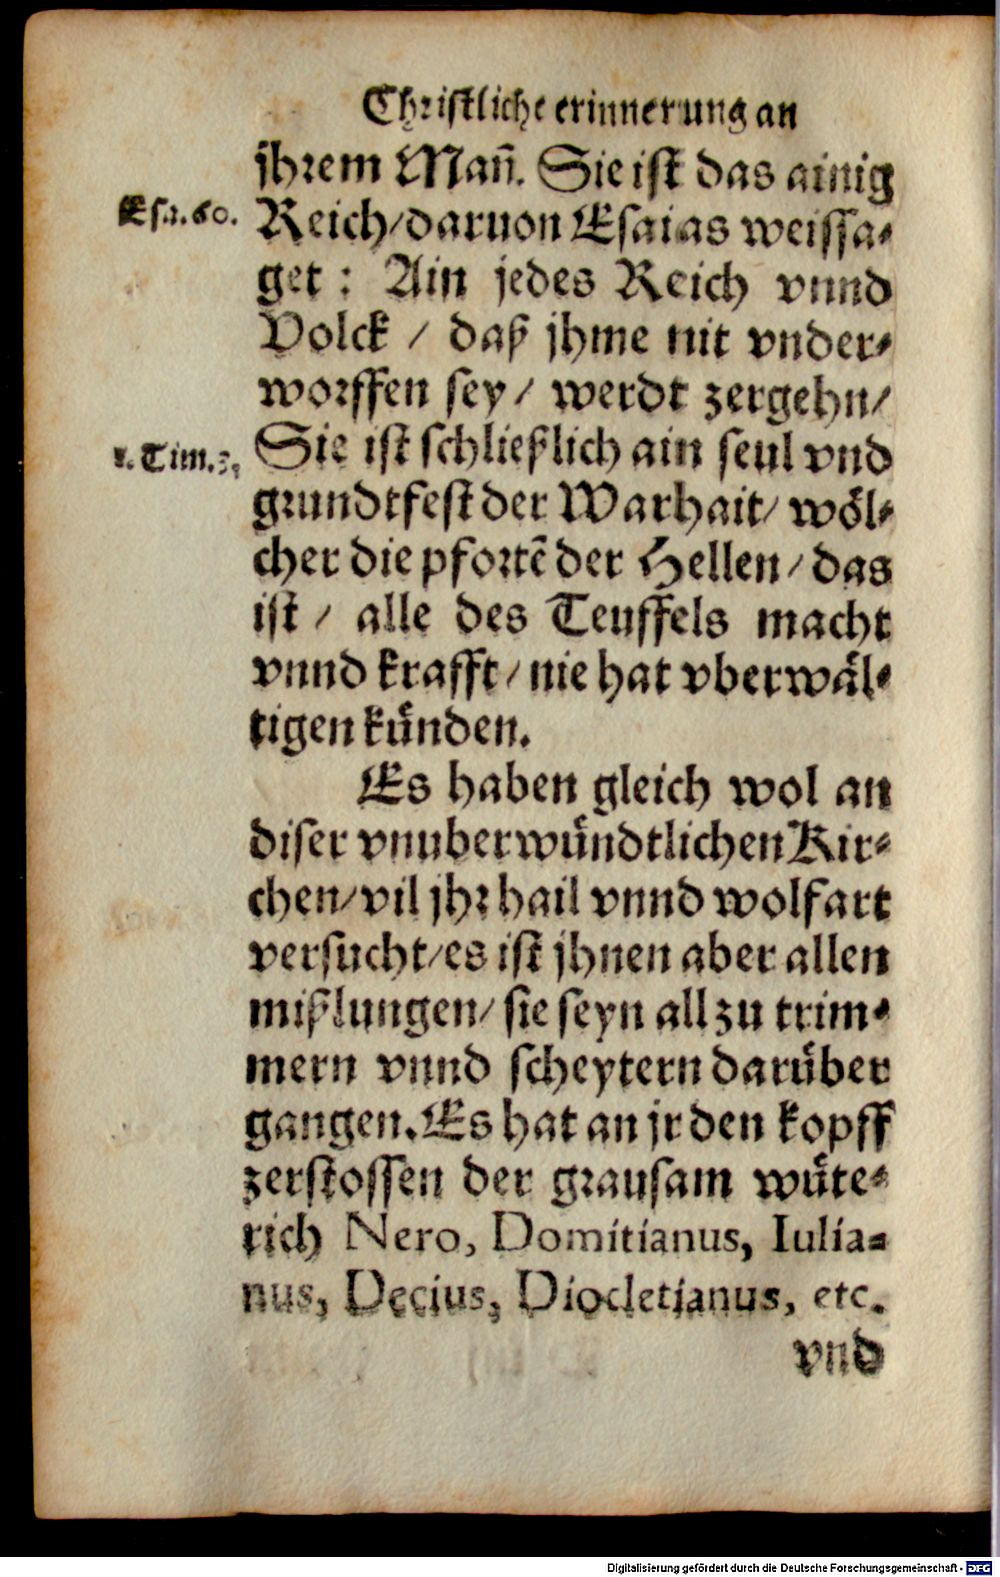 Christliche erinnerung an
jhrem Mañ. Sie ist das ainig
Esa. 60.
Reich / daruon Esaias weissa-
get : Ain jedes Reich vnnd
Volck / daß jhme nit vnder-
worffen sey / werdt zergehn /
1. Tim. 3.
Sie ist schließlich ain seul vnd
grundtfest der Warhait / wöl-
cher die pfortẽ der Hellen / das
ist / alle des Teuffels macht
vnnd krafft / nie hat vberwäl-
tigen künden.
Es haben gleich wol an
diser vnuberwündtlichen Kir-
chen / vil jhr hail vnnd wolfart
versucht / es ist jhnen aber allen
mißlungen / sie seyn all zu trim-
mern vnnd scheytern darüber
gangen. Es hat an jr den kopff
zerstossen der grausam wüte-
rich Nero, Domitianus, Iulia-
nus, Decius, Diocletianus, etc.
vnd
Digitalisierung gefördert durch die Deutsche Forschungsgemeinschaft - DFG